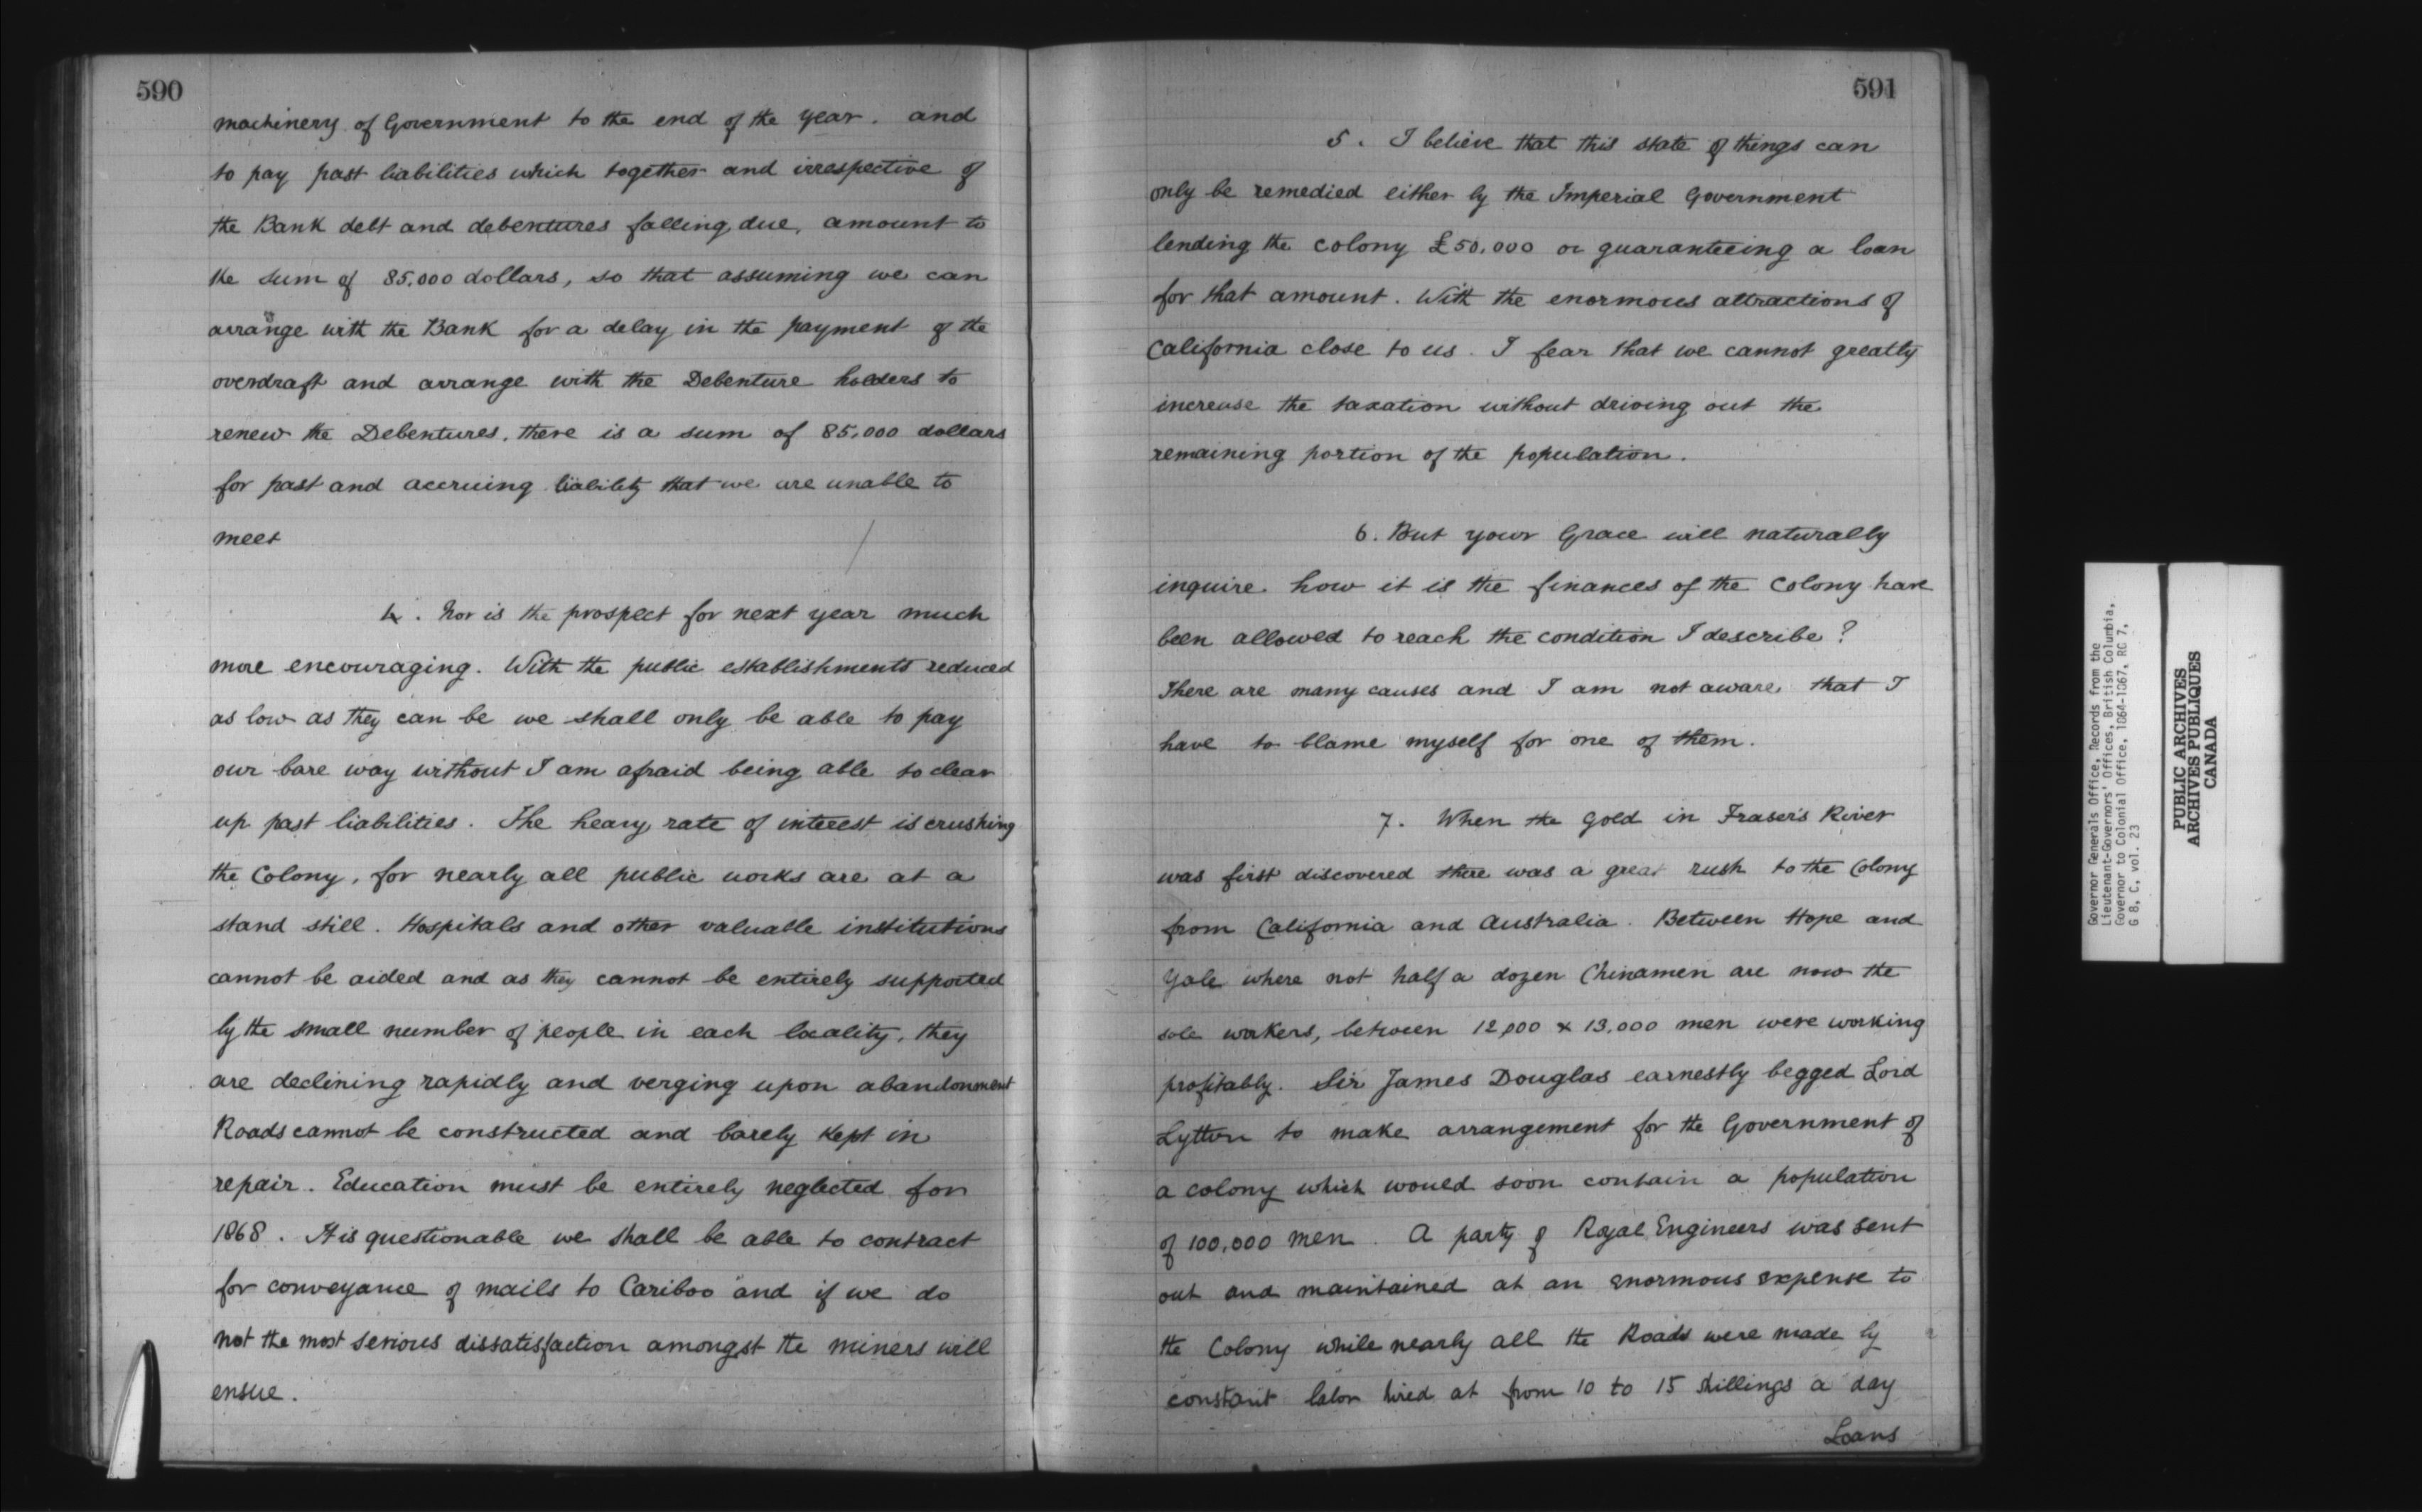 590
machinery of Government to the end of the year. and
to pay past liabilities which together and irrespective of
the Bank debt and debentures falling due, amount to
the sum of 85.000 dollars, so that assuming we can
arrange with the Bank for a delay in the payment of the
overdraft and arrange with the Debenture holders to
renew the Debentures, there is a sum of 85.000 dollars
for past and accruing liability that we are unable to
meet
4. Nor is the prospect for next year much
more encouraging. With the public establishments reduced
as low as they can be we shall only be able to pay
our bare way without I am afraid being able to clear
up past liabilities. The heavy rate of interest is crushing
the Colony, for nearly all public works are at a
stand still. Hospitals and other valuable institutions
cannot be aided and as they cannot be entirely supported
by the small number of people in each locality, they
are declining rapidly and verging upon abandonment
Roads cannot be constructed and barely kept in
repair. Education must be entirely neglected for
1868. It is questionable we shall be able to contract
for conveyance of mails to Cariboo and if we do
not the most serious dissatisfaction amongst the miners will
ensue.
591
5. I believe that this state of things can
only be remedied either by the Imperial Government
lending the colony £50.000 or guaranteeing a loan
for that amount. With the enormous attractions of
California close to us. I fear that we cannot greatly
increase the taxation without driving out the
remaining portion of the population.
6. But your Grace will naturally
inquire how it is the finances of the Colony have
been allowed to reach the condition I describe?
There are many causes and I am not aware that I
have to blame myself for one of them.
7. When the gold in Fraser's River
was first discovered there was a great rush to the Colony
from California and Australia. Between Hope and
Yale where not half a dozen Chinamen are now the
sole workers, between 12,000 & 13.000 men were working
profitably. Sir James Douglas earnestly begged Lord
Lytton to make arrangement for the Government of
a colony which would soon contain a population
of 100.000 men. A party of Royal Engineers was sent
out and maintained at an enormous expense to
the Colony while nearly all the Roads were made by
constant labor hired at from 10 to 15 shillings a day
Loans
Governor Generals Office, Records from the
Lieutenant-Governors' Offices, British Columbia,
Governor to Colonial Office, 1864-1867, RG 7,
G 8, C, vol. 23
PUBLIC ARCHIVES
ARCHIVES PUBLIQUES
CANADA